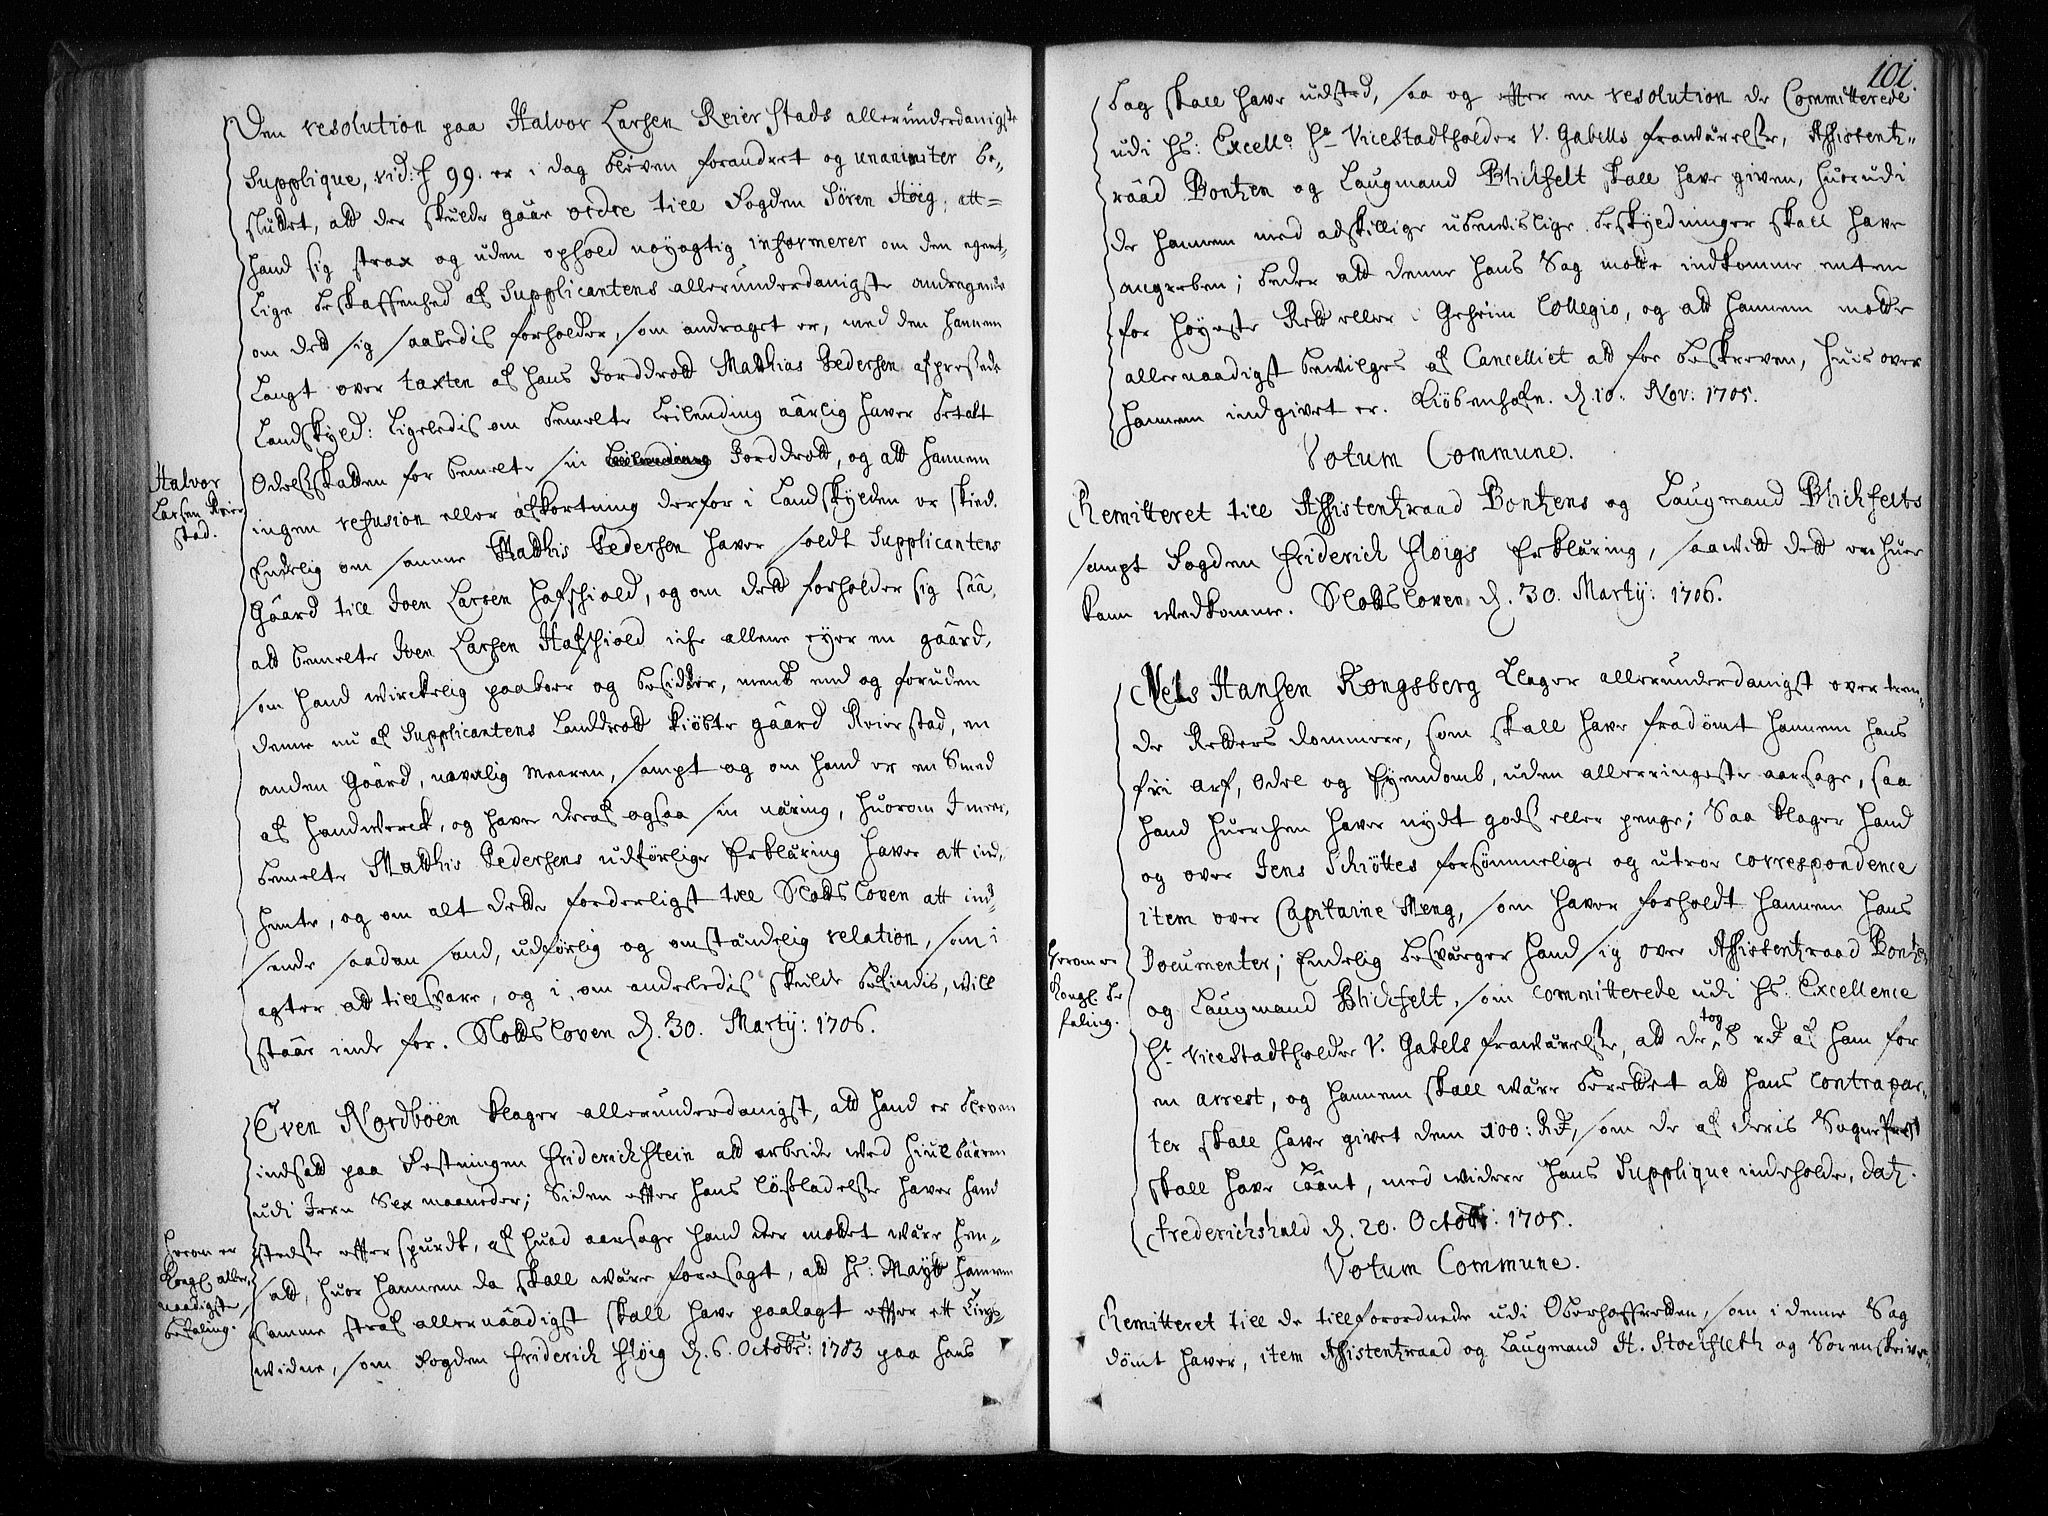 Den resolution paa Halvor Larsen Reierstads allerunderdanigste
Supplique, vid: f 99. er i dag bleven forandret og unanimiter be-
sluttet, att der skulde gaae ordre till Fogden Søren Høeg, att
hand sig strax og uden ophold nøyagtig informerer om den egent-
lige beskaffenhed af Supplicantens allerunderdanigste andragende
om dett sig saaledis forholder, som andraget er, med den hannem
Langt over taxten af hans Jorddrott Matthias Pedersen afpressede
Landskyld: Ligeledis om bemelte Leilending aarlig haver betalt
Odelsskatten for bemelte sin Jorddrott, og att hannem
ingen refusion eller afkortning derfor i Landskylden er skied.
Halvor
Larsen Reier
stad.
Endelig om samme Matthis Pedersen haver soldt Supplicantens
Gaard till Iven Larsen Hafshiold, og om dett forholder sig saa,
att bemelte Iven Larsen Hafshiold icke allene eyer en gaard,
som hand wirckelig paaboer og besidder, mens end og foruden
denne nu af Supplicantens Landdrott kiøbte gaard Reierstad, en
anden Gaard, navnlig Meeren, sampt og om hand er en Smed
af Handwerck, og haver deraf ogsaa sin næring, huorom I meer-
bemelte Matthis Pedersens udførlige Erklæring haver att ind-
hente, og om alt dette forderligst till Slottsloven att ind-
sende saadan sand, udførlig og omstændelig relation, som i
agter att tillsvare, og i, om anderledis skulde befindis, will
staae inde for. Slottsloven d. 30. Martij: 1706.
Even Nordbøen klager allerunderdanigst, att hand er bleven
indsatt paa Festningen Friderichstein att arbeide wed Hiulbaaren
udi Jern Sex maaneder; Siden effter hans løsladelse haver hand
stedse efterspurdt, af huad aarsage hand der mottet være hen-
satt, huor hannem da skall være foresagt, att Hs: Maytt hannem
samme straf allernaadigst skall have paalagt effter ett tings-
widne, som Fogden Friderich Fløig d. 6. Octobr: 1703 paa hans
Herom er
Kongl. aller-
naadigste
befaling.
101.
bag skall have udsted, saa og effter en resolution de Committerede
udi Hs: Excell. Hr Vicestadtholder V. Gabells frawærelse, Assistentz-
raad Bontzen og Laugmand Blichfelt skall have given, huorudi
de hannem med adskillige ubewislige beskyldninger skall have
angreben; beder att denne hans Sag motte indkomme enten
for Høyeste Rett eller i Geheim Collegio, og att hannem motte
allernaadigst bewilges af Cancelliet att faa beskreven, huis over
hannem indgivet er. Kiøbenhafn. d. 10. Nov: 1705.
Votum Commune.
Remitteret till Assistentzraad Bontzens og Laugmand Blichfelts
sampt Fogden Friderich Fløigs Erklæring, saawitt dett enhuer
kann wedkomme. Slottsloven d. 30. Martij: 1706.
Nels Hansen Kongsberg klager allerunderdanigst over tren-
de Retters Dommere, som skall have fradømt hannem hans
frii Arf, Odel og Eyendomb, uden allerringeste aarsage, saa
hand huerchen haver nydt gods eller penge; Saa klager hand
og over Jens Schiøttes forsømmelige og utroe correspondence
item over Capitaine Meng, som haver forholdt hannem hans
Documenter; Endelig besværger hand sig over Assistentzraad Bontzen
og Laugmand Blichfelt, som committerede udi Hs: Excellence
Hr Vicestadtholder V. Gabels frawærelse, att de tog 8 rd af ham for
en arrest, og hannem skall være berettet att hans contrapar-
ter skall have givet dem 100: Rd, som de af deris Sogneprest
skall have laant, med widere hans Supplique indeholder, dat.
Frederichshald d. 20. Octobr: 1705.
Herom er
Kongl. be
faling.
Votum Commune.
Remitteret till de tillforordnede udi Oberhoffretten, som i denne Sag
dømt haver, item Assistentzraad og Laugmand H. Stockfleth og Sorenskrive-